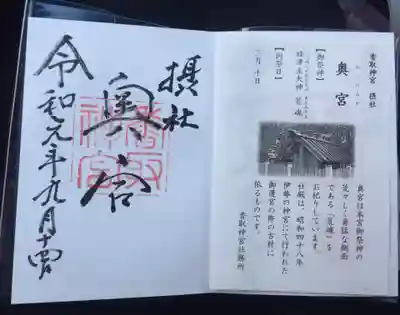 香取神宮 摂社
奥宮
【御祭神】
経津主大神 荒魂
【例祭日】
奥宮は本宮御祭神の
荒々しく勇猛な側面
である「荒魂」を
お祀りしています。
社殿は、昭和四十八年
伊勢の神宮にて行われた
御遷宮の際の古材に
依るものです。
香取神宮社務所
摂社
奥宮
香取神宮
令和元年九月十四日